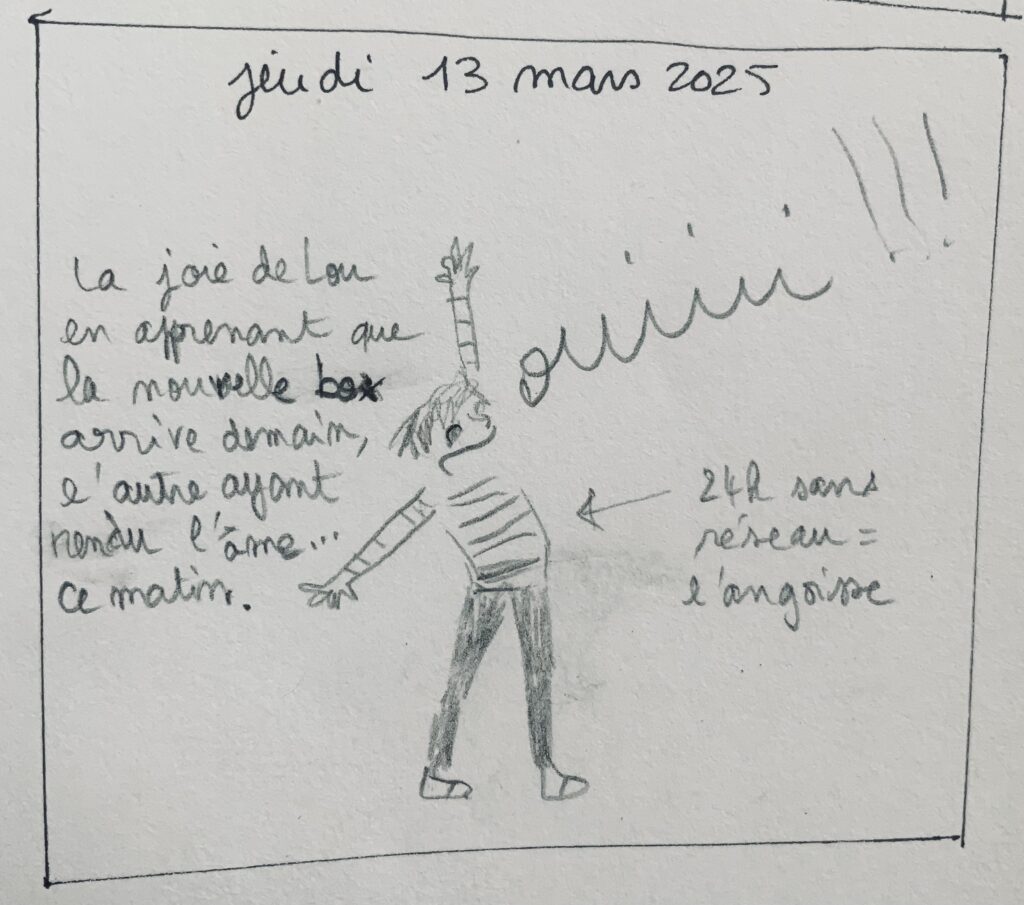 jeudi 13 mars 2025
la joie de Lou
en apprenant que
la nouvelle box
arrive demain,
l'autre ayant
rendu l'âme...
ce matin.
ouiiii !!!
24h sans
réseau =
l'angoisse